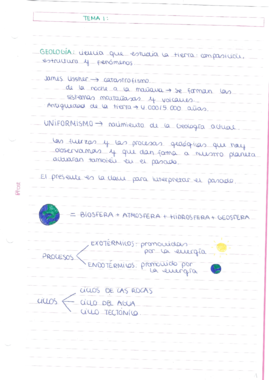 TEMA 1:
GEOLOGÍA: ciencia que estudia la tierra composición,
estructura y fenómenos.
James Ussher → catastrofismo
de la noche a la mañana → se forman los
sistemas montañosos y volcanes.
Antigüedad de la tierra → años.
UNIFORMISMO → nacimiento de la Geología actual.
Las fuerzas y los procesos geológicos que hoy
observamos y que dan forma a nuestro planeta
actuaron también en el pasado.
El presente es la clave para interpretar el pasado.
= BIOSFERA + ATMOSFERA + HIDROSFERA + GEOSFERA
PROCESOS
EXOTÉRMICO: promovidas
por la energía
ENDOTÉRMICO: promovido por
la energía
CICLOS
CICLOS DE LAS ROCAS
CICLO DEL AGUA
CICLO TECTÓNICO